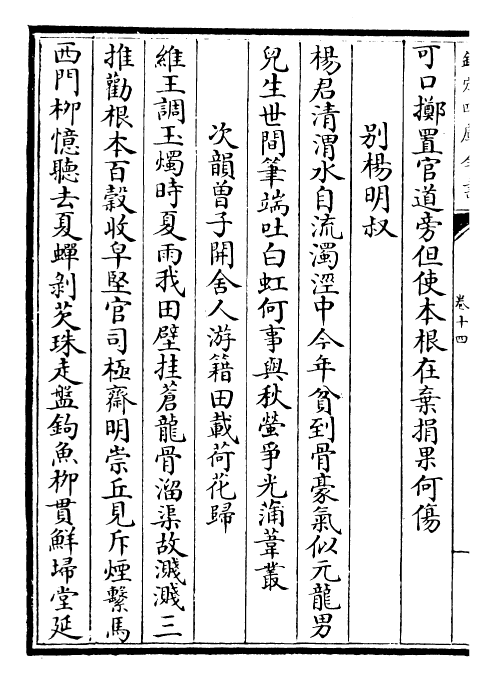 欽定四庫全書
卷十四
可口擲置官道旁但使本根在棄捐果何傷
别楊明叔
楊君清渭水自流濁涇中今年貧到骨豪氣似元龍男
兒生世間筆端吐白虹何事與秋螢爭光蒲葦叢
次韻曾子開舍人游籍田載荷花歸
維王調玉燭時夏雨我田壁挂蒼龍骨溜渠故濺濺三
推勸根本百穀收皁堅官司極齋明崇丘見斥煙繫馬
西門栁憶聽去夏蟬剥芡珠走盤鈎魚栁貫鮮埽堂延